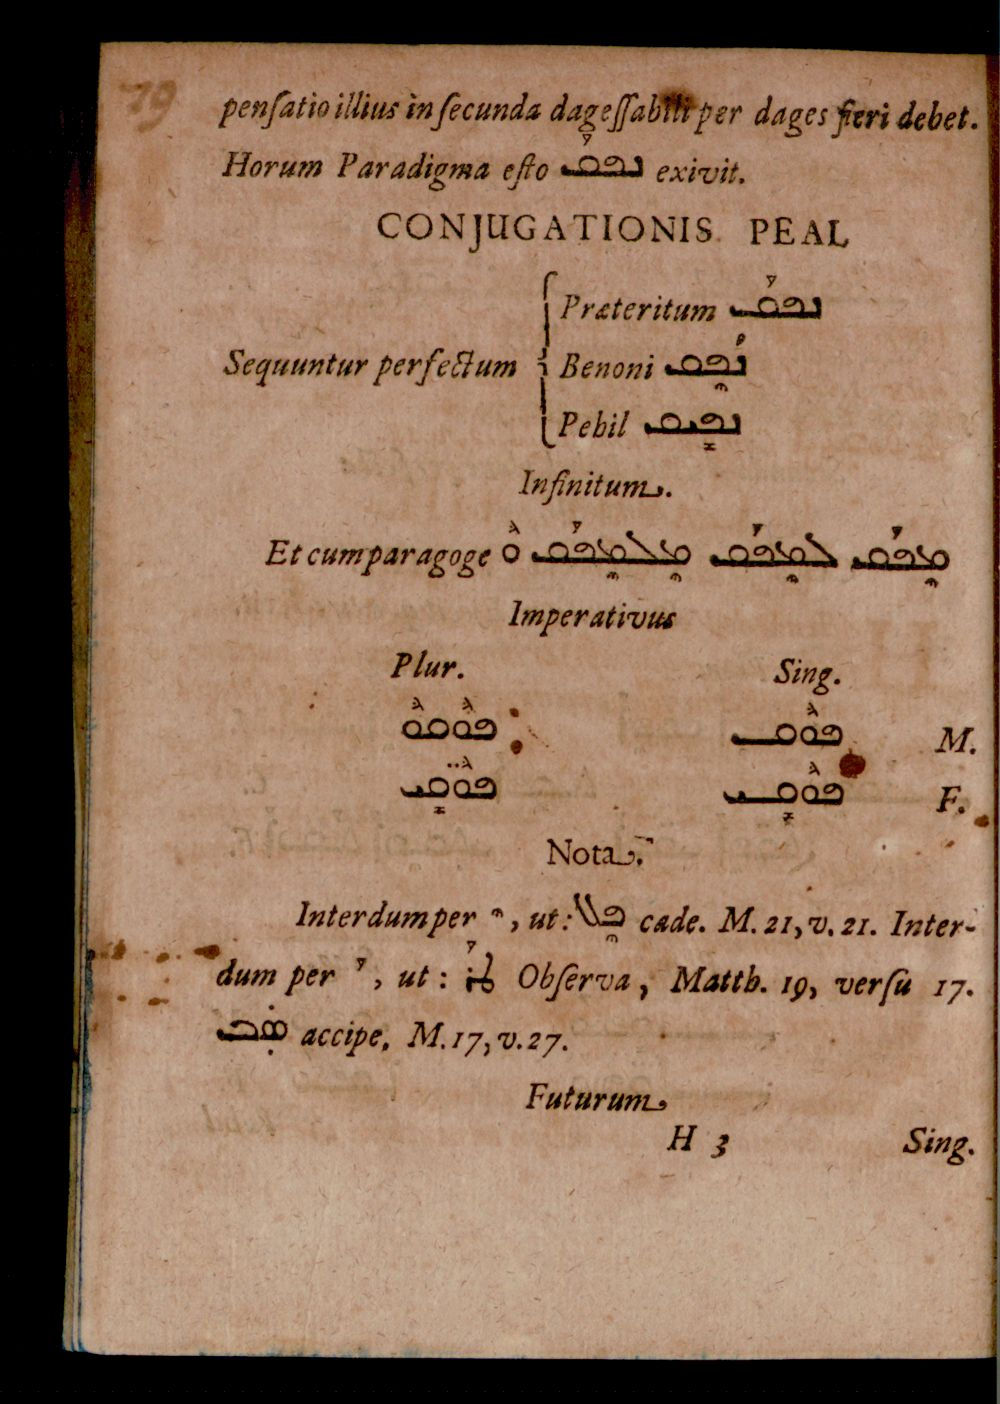 79
penſatio illius in ſecunda dageſſabili per dages fieri debet.
Horum Paradigma eſto ܢܦܰܩ exivit.
CONJUGATIONIS PEAL
Præteritum ܢܦܰܩ
Sequuntur perfectum Benoni ܢܳܦܶܩ
Pebil ܢܦܺܝܩ
Infinitum.
Et cum paragoge ܘܽ ܡܶܦܰܩ ܠܡܶܦܰܩ
Imperativus
Plur. Sing.
ܦܽܘܩܘܽ ܦܽܘܩ M.
ܦܽܘܩ̈ܺܝ ܦܽܘܩܺܝ F.
Nota.
Interdum per ܶ, ut: ܦܶܠ cade. M. 21, v. 21. Inter-
dum per ܰ, ut: ܛܰܪ Obſerva, Matth. 19, verſu 17.
ܣܒ accipe, M. 17, v. 27.
Futurum
H 3 Sing.